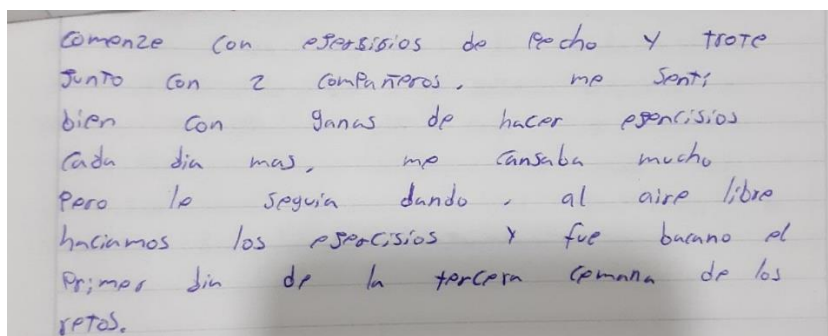 Comenze con ejersisios de Pecho y trote
Junto con 2 compañeros. me senti
bien con ganas de hacer egercisios
cada dia mas. me cansaba mucho
Pero le seguia dando. al aire libre
haciamos los ejercisios y fue bacano el
Primer dia de la tercera cemana de los
retos.